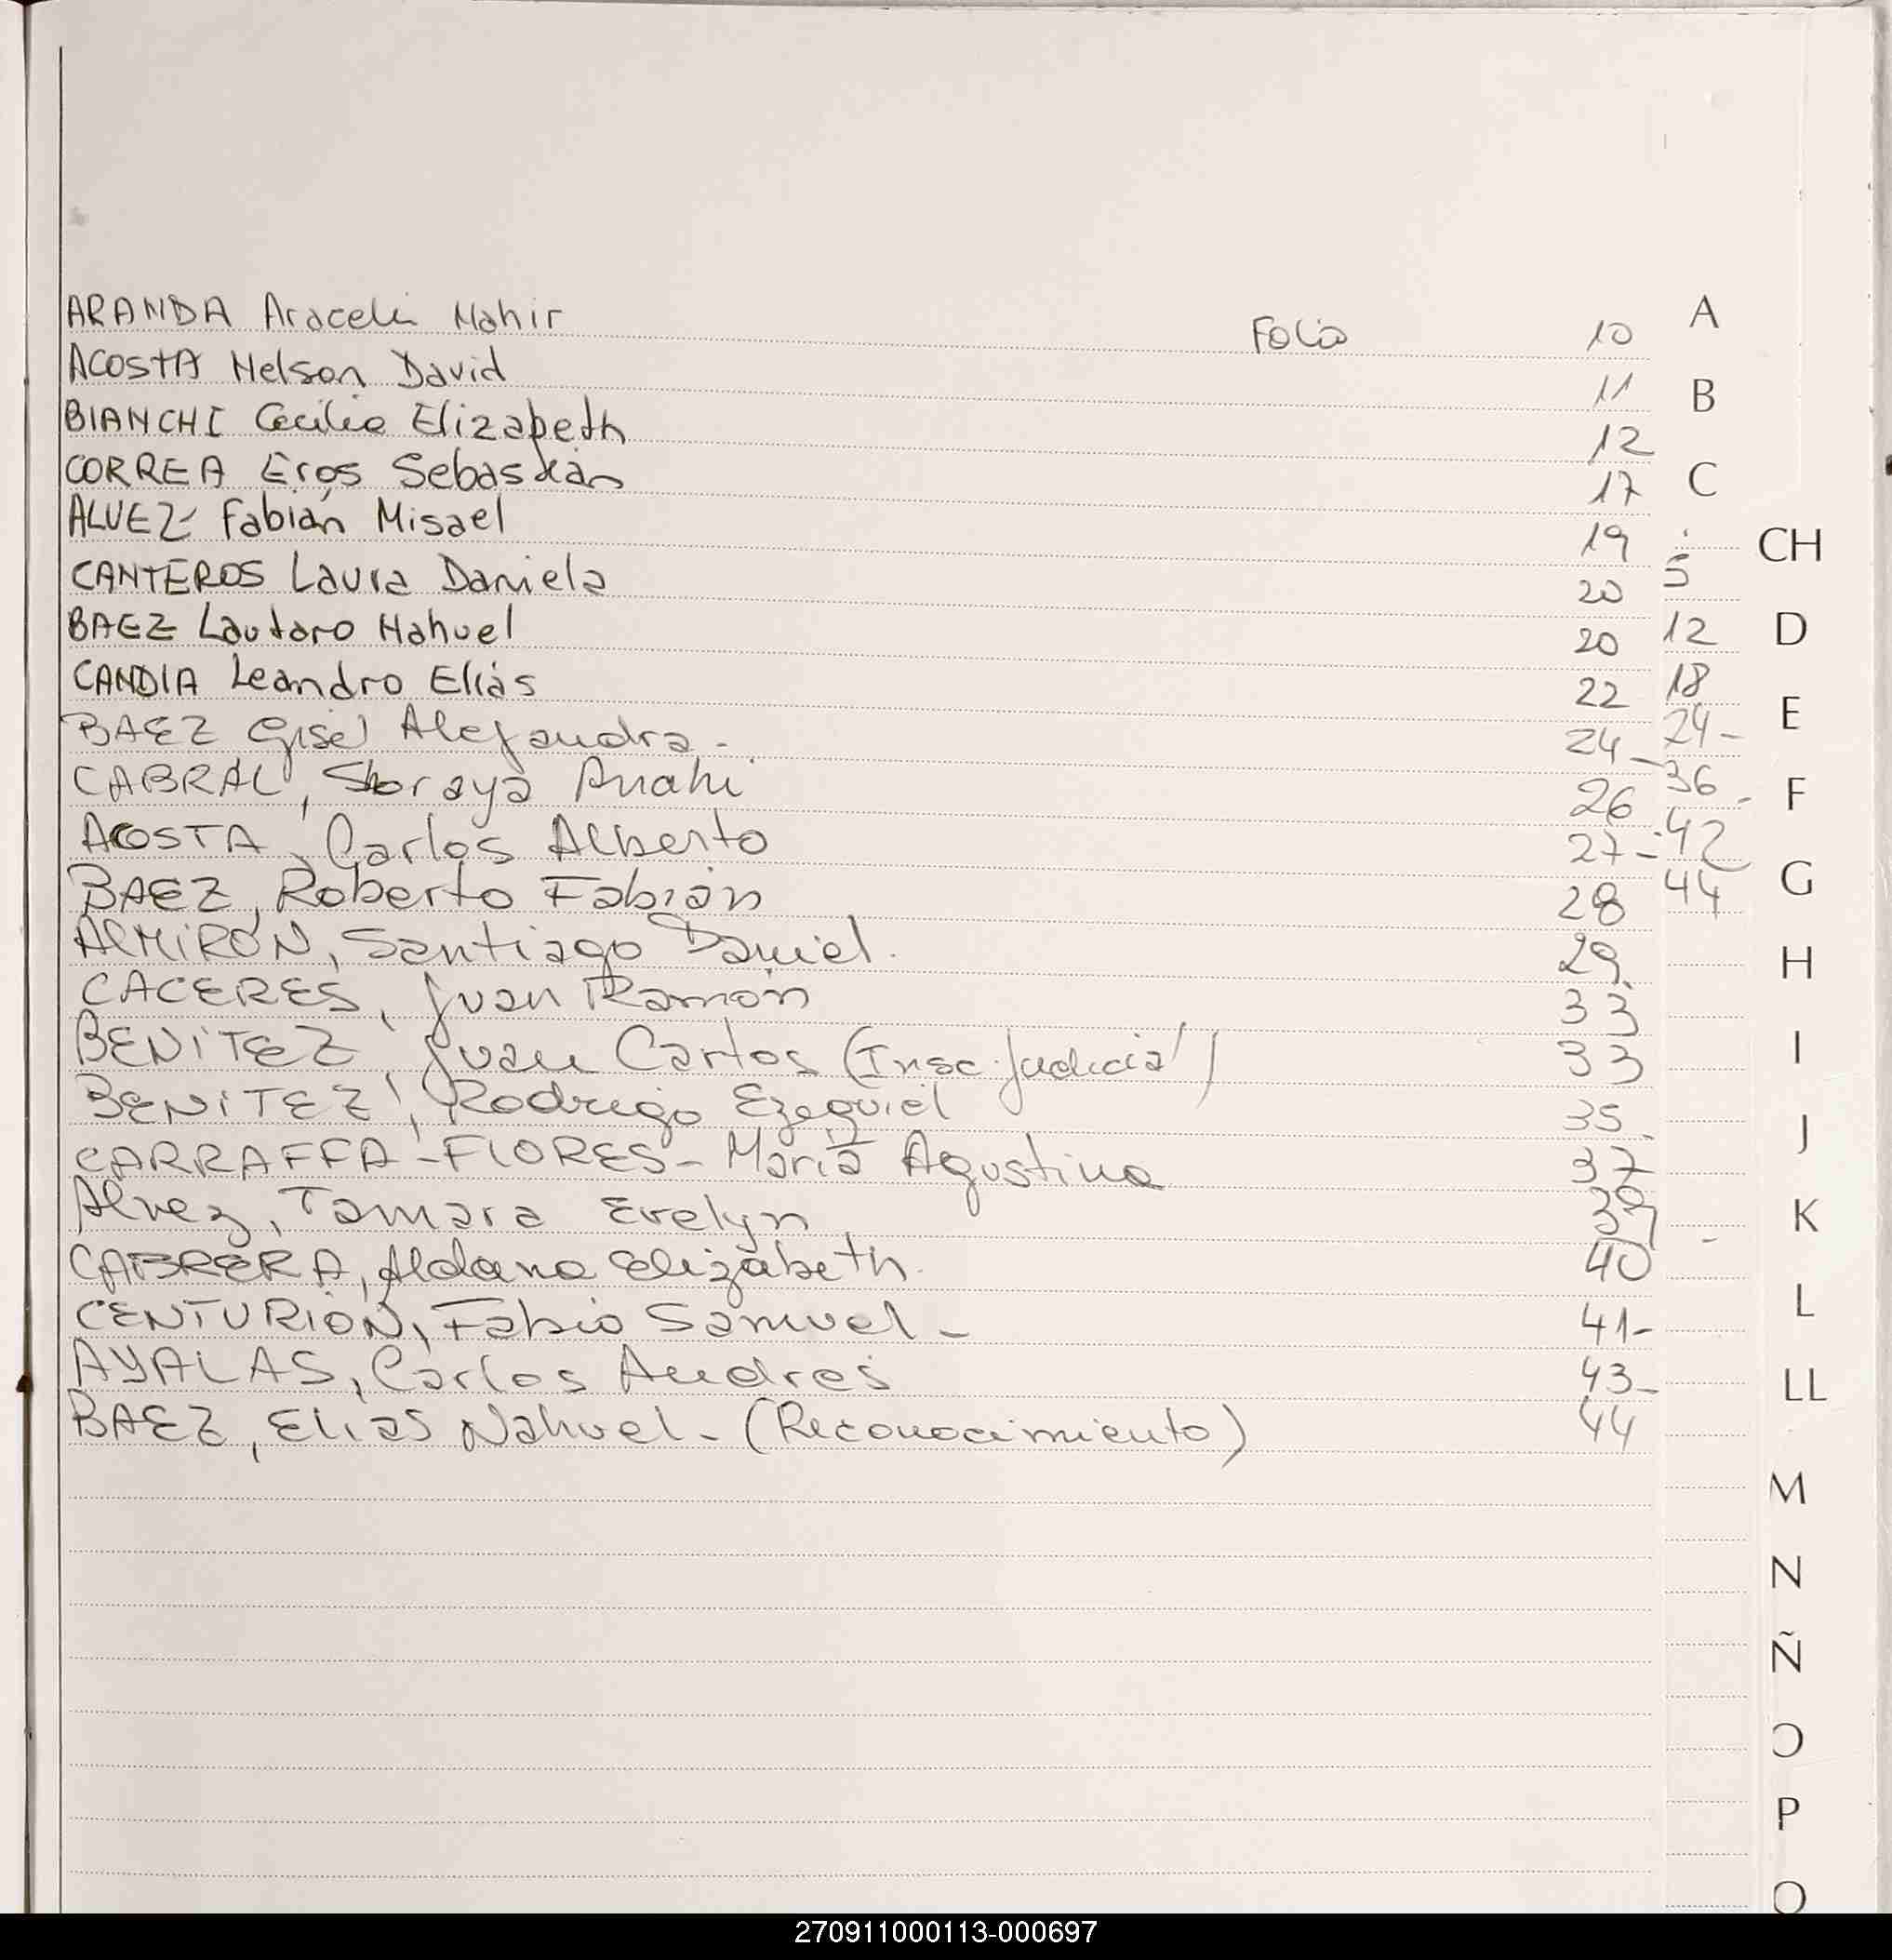 ARANDA Araceli Nahir Folio 10
ACOSTA Nelson David 11
BIANCHI Cecilia Elizabeth 12
CORREA Eros Sebastián 17
ALVEZ Fabián Misael 19
CANTEROS Laura Daniela 20
BAEZ Lautaro Nahuel 20
CANDIA Leandro Elías 22
BAEZ Gisel Alejandra. 24-
CABRAL, Soraya Anahi 26
ACOSTA, Carlos Alberto 27-
BAEZ, Roberto Fabián 28
ALMIRÓN, Santiago Daniel. 29
CACERES, Juan Ramón 33
BENITEZ, Juan Carlos (Insc. Judicial) 33
BENITEZ, Rodrigo Ezequiel 35
CARRAFFA-FLORES- María Agustina 37
Alvez, Tamara Evelyn 39
CABRERA, Aldana Elizabeth. 40
CENTURIÓN, Fabio Samuel- 41-
AYALAS, Carlos Andres 43-
BAEZ, Elias Nahuel-(Reconocimiento) 44
5
12
18
24-
36
42
44
A
B
C
CH
D
E
F
G
H
I
J
K
L
LL
M
N
Ñ
O
P
270911000113-000697